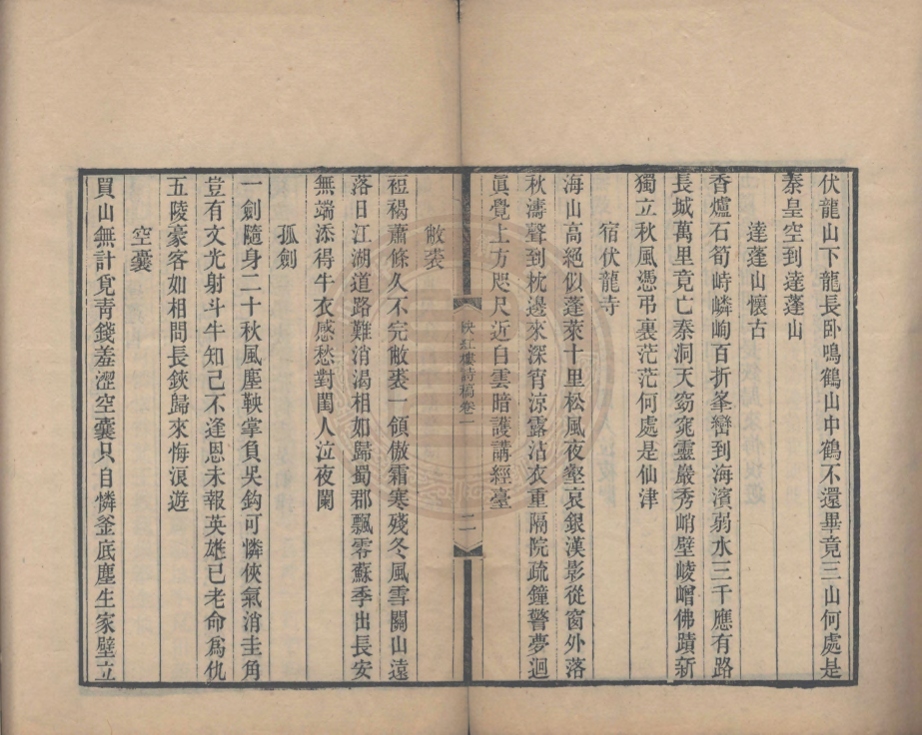 伏龍山下龍長卧鳴鶴山中鶴不還畢竟三山何處是
秦皇空到達蓬山
達蓬山懷古
香爐石筍峙嶙峋百折峯巒到海濱弱水三千應有路
長城萬里竟亡秦洞天窈窕靈巖秀峭壁崚嶒佛蹟新
獨立秋風憑弔裏茫茫何處是仙津
宿伏龍寺
海山高絕似蓬萊十里松風夜壑哀銀漢影從窗外落
秋濤聲到枕邊來深宵涼露沾衣重隔院疏鐘警夢迴
眞覺上方咫尺近白雲暗護講經臺
紅樓詩稿卷一
二
敝裘
裋褐蕭條久不完敝裘一領傲霜寒殘冬風雪關山遠
落日江湖道路難消渴相如歸蜀郡飄零蘇季出長安
無端添得牛衣感愁對閨人泣夜闌
孤劍
一劍隨身二十秋風塵鞅掌負吳鈎可憐俠氣消圭角
豈有文光射斗牛知己不逢恩未報英雄已老命爲仇
五陵豪客如相問長鋏歸來悔浪遊
空囊
買山無計覓靑錢羞澀空囊只自憐釜底塵生家壁立